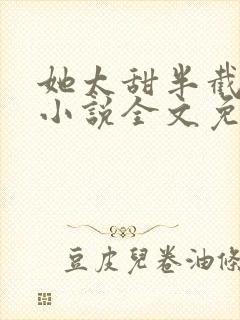 她太甜半截
小說全文免
豆皮兒卷油條